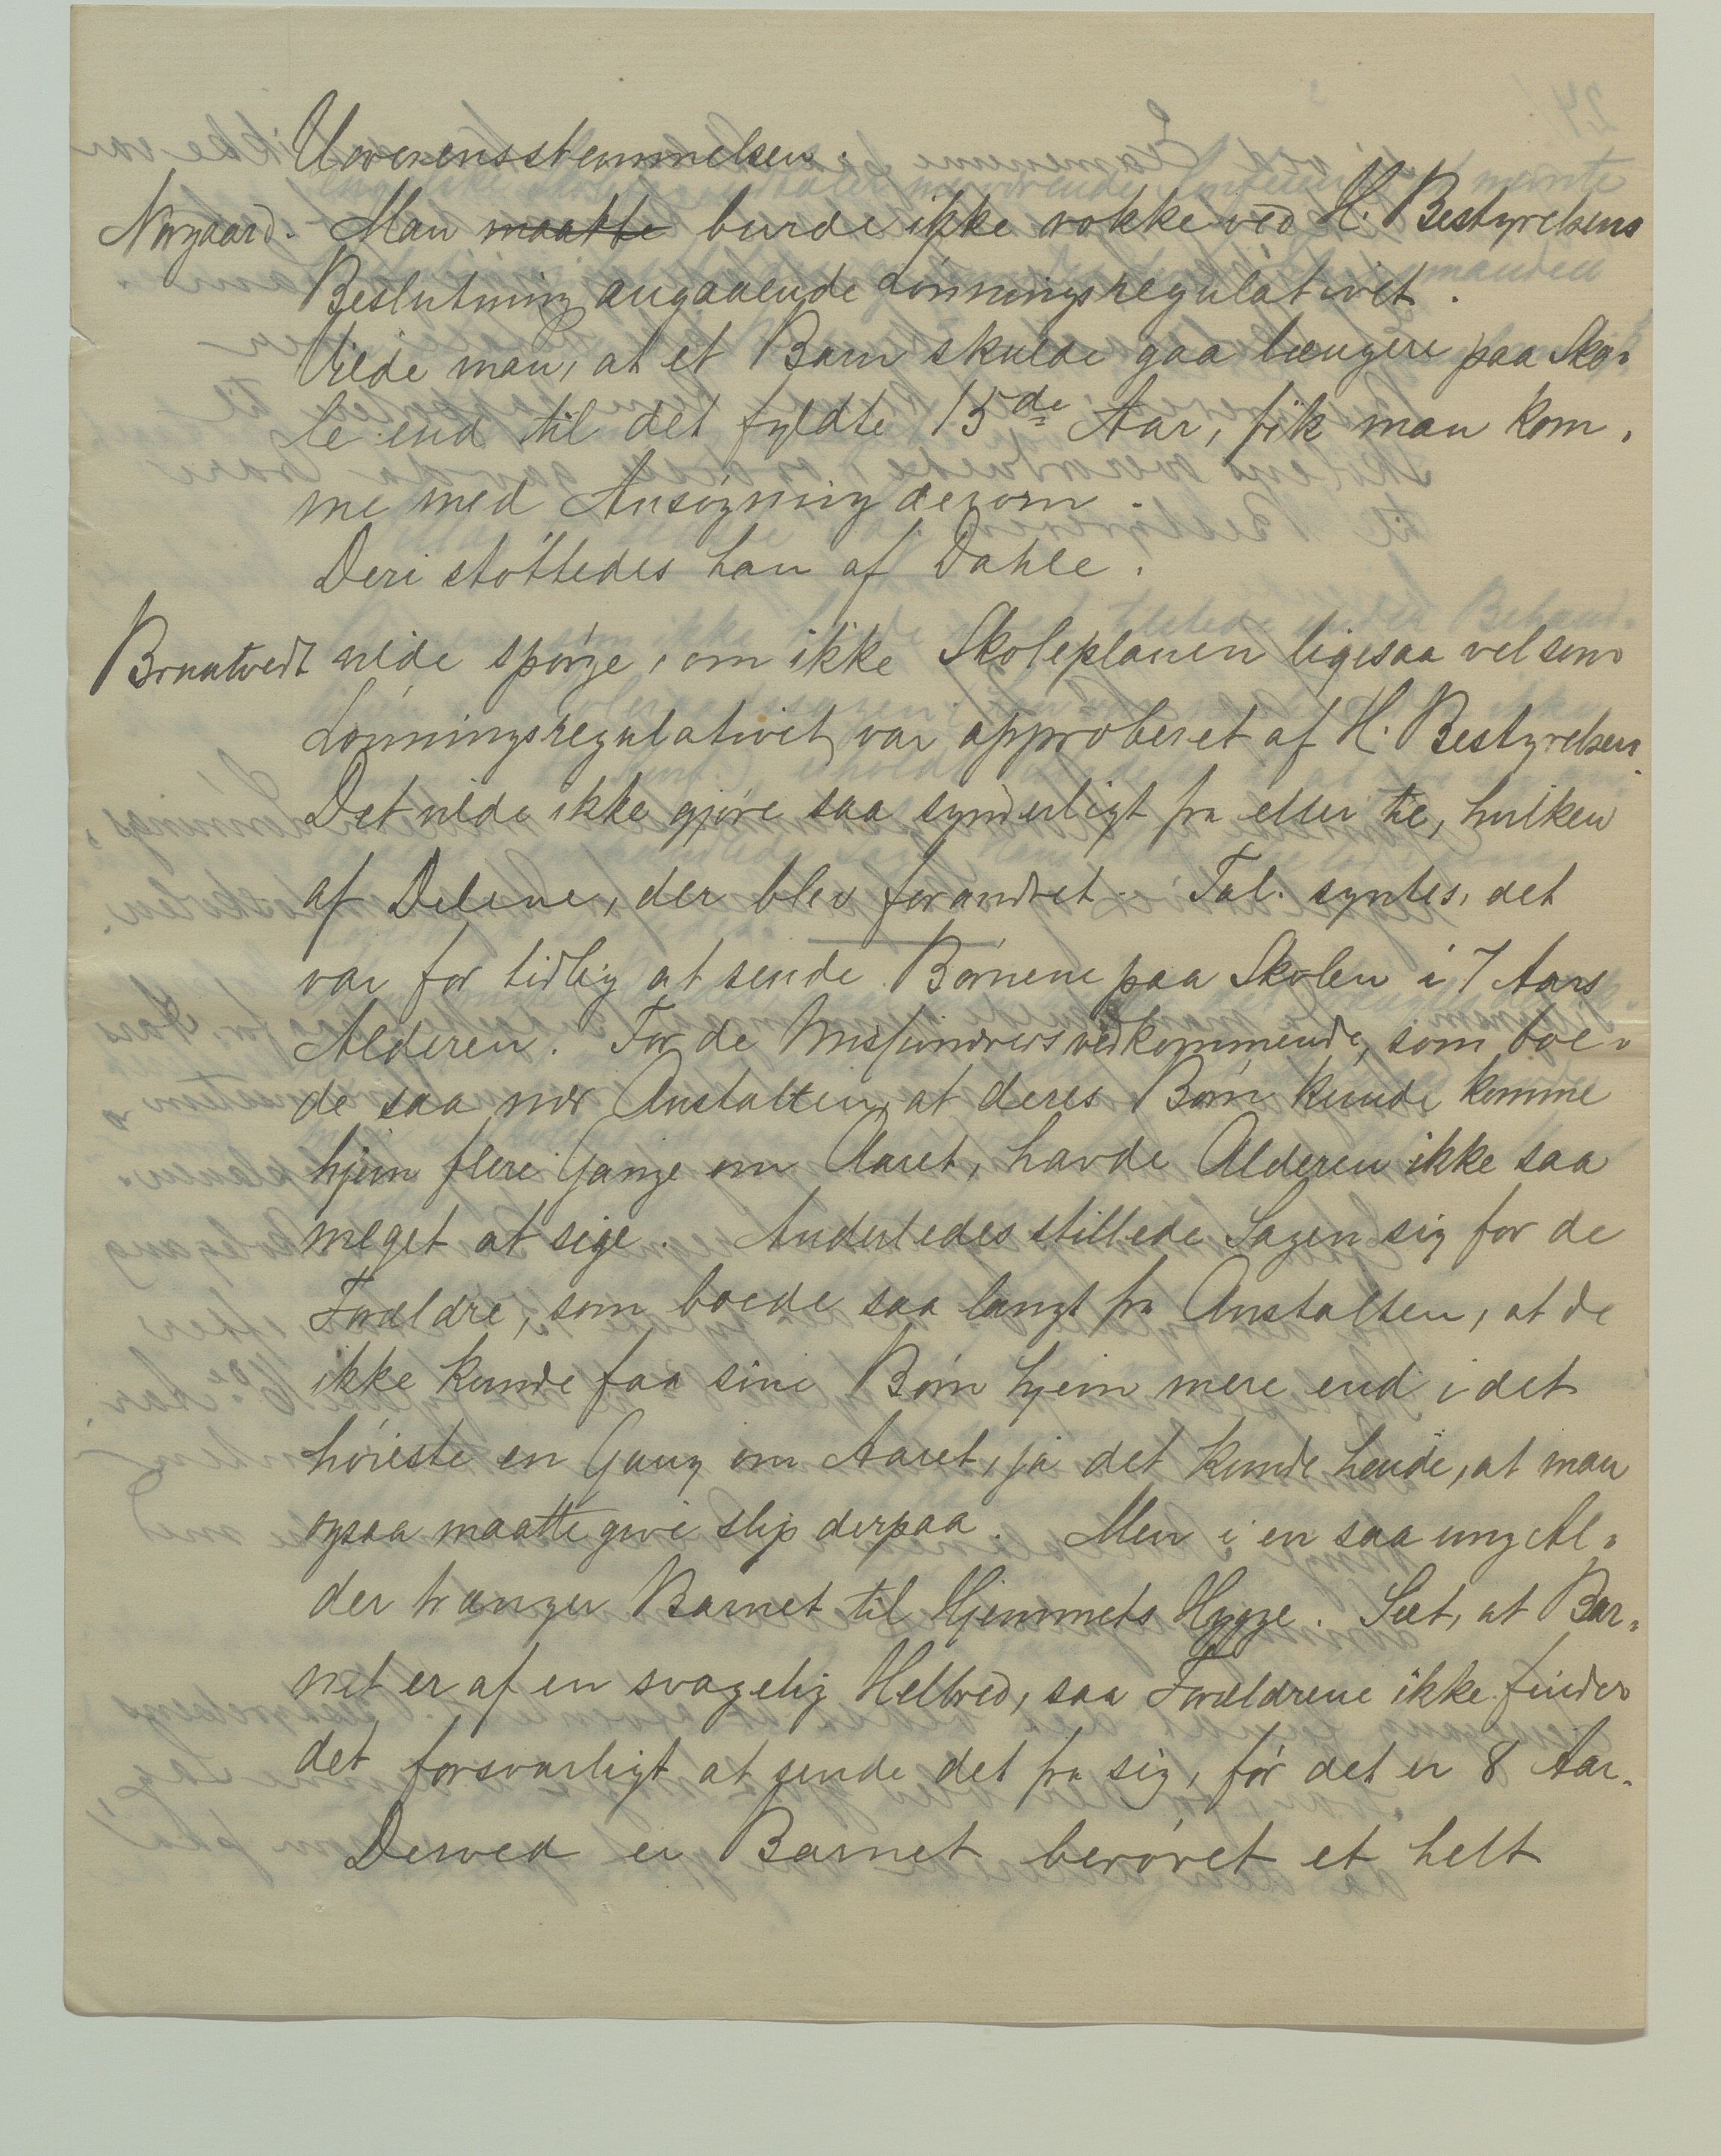 Uoverensstemmelsen.
Norgaard. Man maatte burde ikke rokke ved H. Bestyrelsens
Beslutning angaaende Lønningsregulativet.
Vilde man, at et Barn skulde gaa længere paa Sko-
le end til det fyldte 15de Aar, fik man kom-
me med Ansøgning derom.
Deri støttedes han af Dahle.
Braatvedt vilde spørge, om ikke Skoleplanen ligesaa vel som
Lønningsregulativet var approberet af H. Bestyrelsen.
Det vilde ikke gjøre saa synderligt fra eller til, hvilken
af Delene, der blev forandret. Tal. syntes, det
var for tidlig at sende Børnene paa Skolen i 7 Aars
Alderen. For de Missionærers vedkommende, som boe-
de saa nær Anstalten, at deres Børn kunde komme
hjem flere Gange om Aaret, havde Alderen ikke saa
meget at sige. Anderledes stillede Sagen sig for de
Forældre, som boede saa langt fra Anstalten, at de
ikke kunde faa sine Børn hjem mere end i det
høieste en Gang om Aaret, ja det kunde hende, at man
ogsaa maatte give slip derpaa. Men i en saa ung Al-
der trænger Barnet til Hjemmets Hygge. Sæt, at Bar-
net er af en svagelig Helbred, saa Forældrene ikke finder
det forsvarligt at sende det fra sig, før det er 8 Aar.
Derved er Barnet berøvet et helt